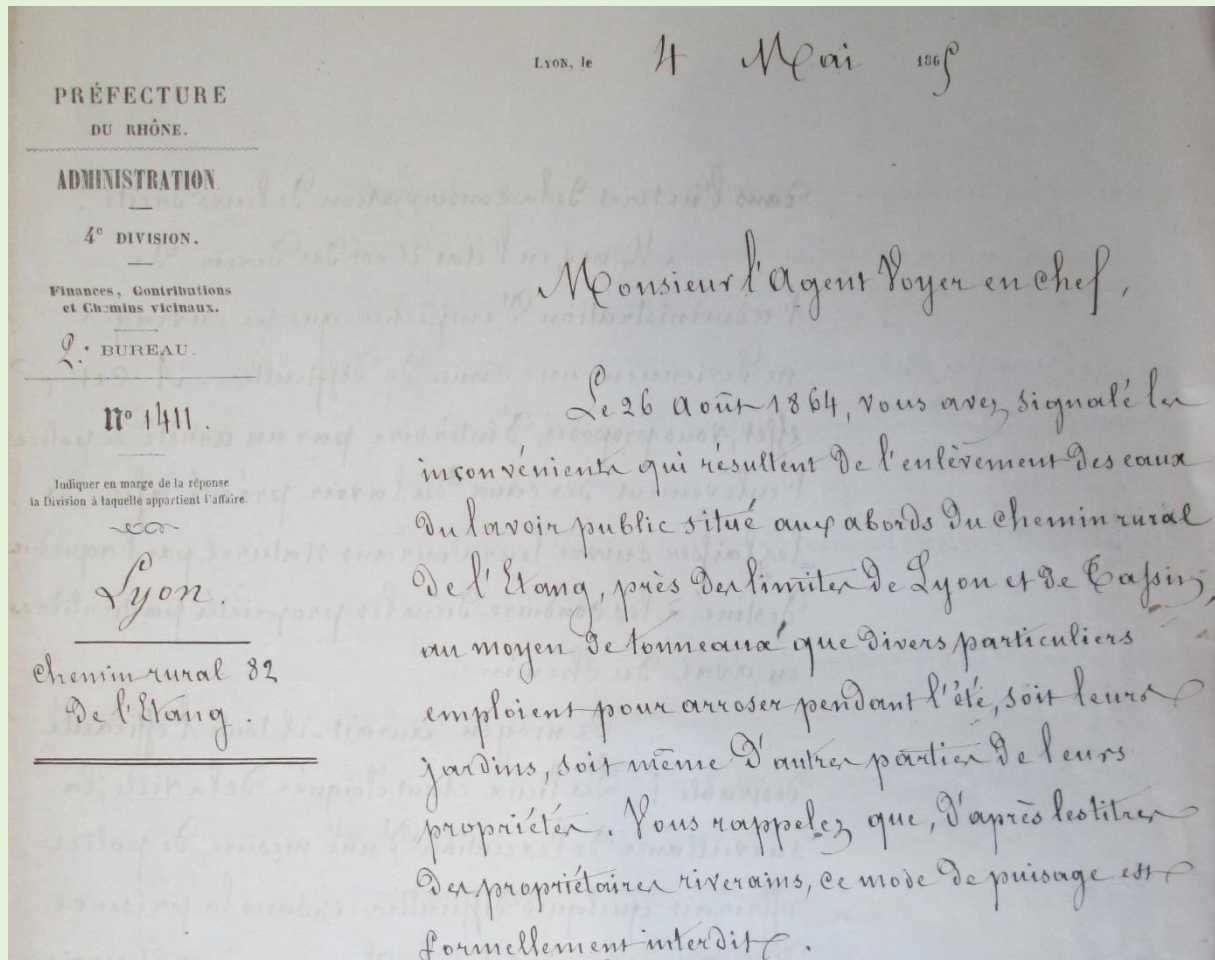 Lyon, le 4 Mai 1865
PRÉFECTURE
DU RHÔNE.
ADMINISTRATION.
4e DIVISION.
Finances, Contributions
et Chemins vicinaux.
2. BUREAU.
No 1411.
Indiquer en marge de la réponse
la Division à laquelle appartient l'affaire.
Lyon.
chemin rural 82
de l'Etang.
Monsieur l'Agent Voyer en chef,
Le 26 Août 1864, vous avez signalé les
inconvénients qui résultent de l'enlèvement des eaux
du lavoir public situé aux abords du chemin rural
de l'Etang, près des limites de Lyon et de Tassin,
au moyen de tonneaux que divers particuliers
emploient pour arroser pendant l'été, soit leurs
jardins, soit même d'autres parties de leurs
propriétés. Vous rappelez que, d'après les titres
des propriétaires riverains, ce mode de puisage est
formellement interdit.